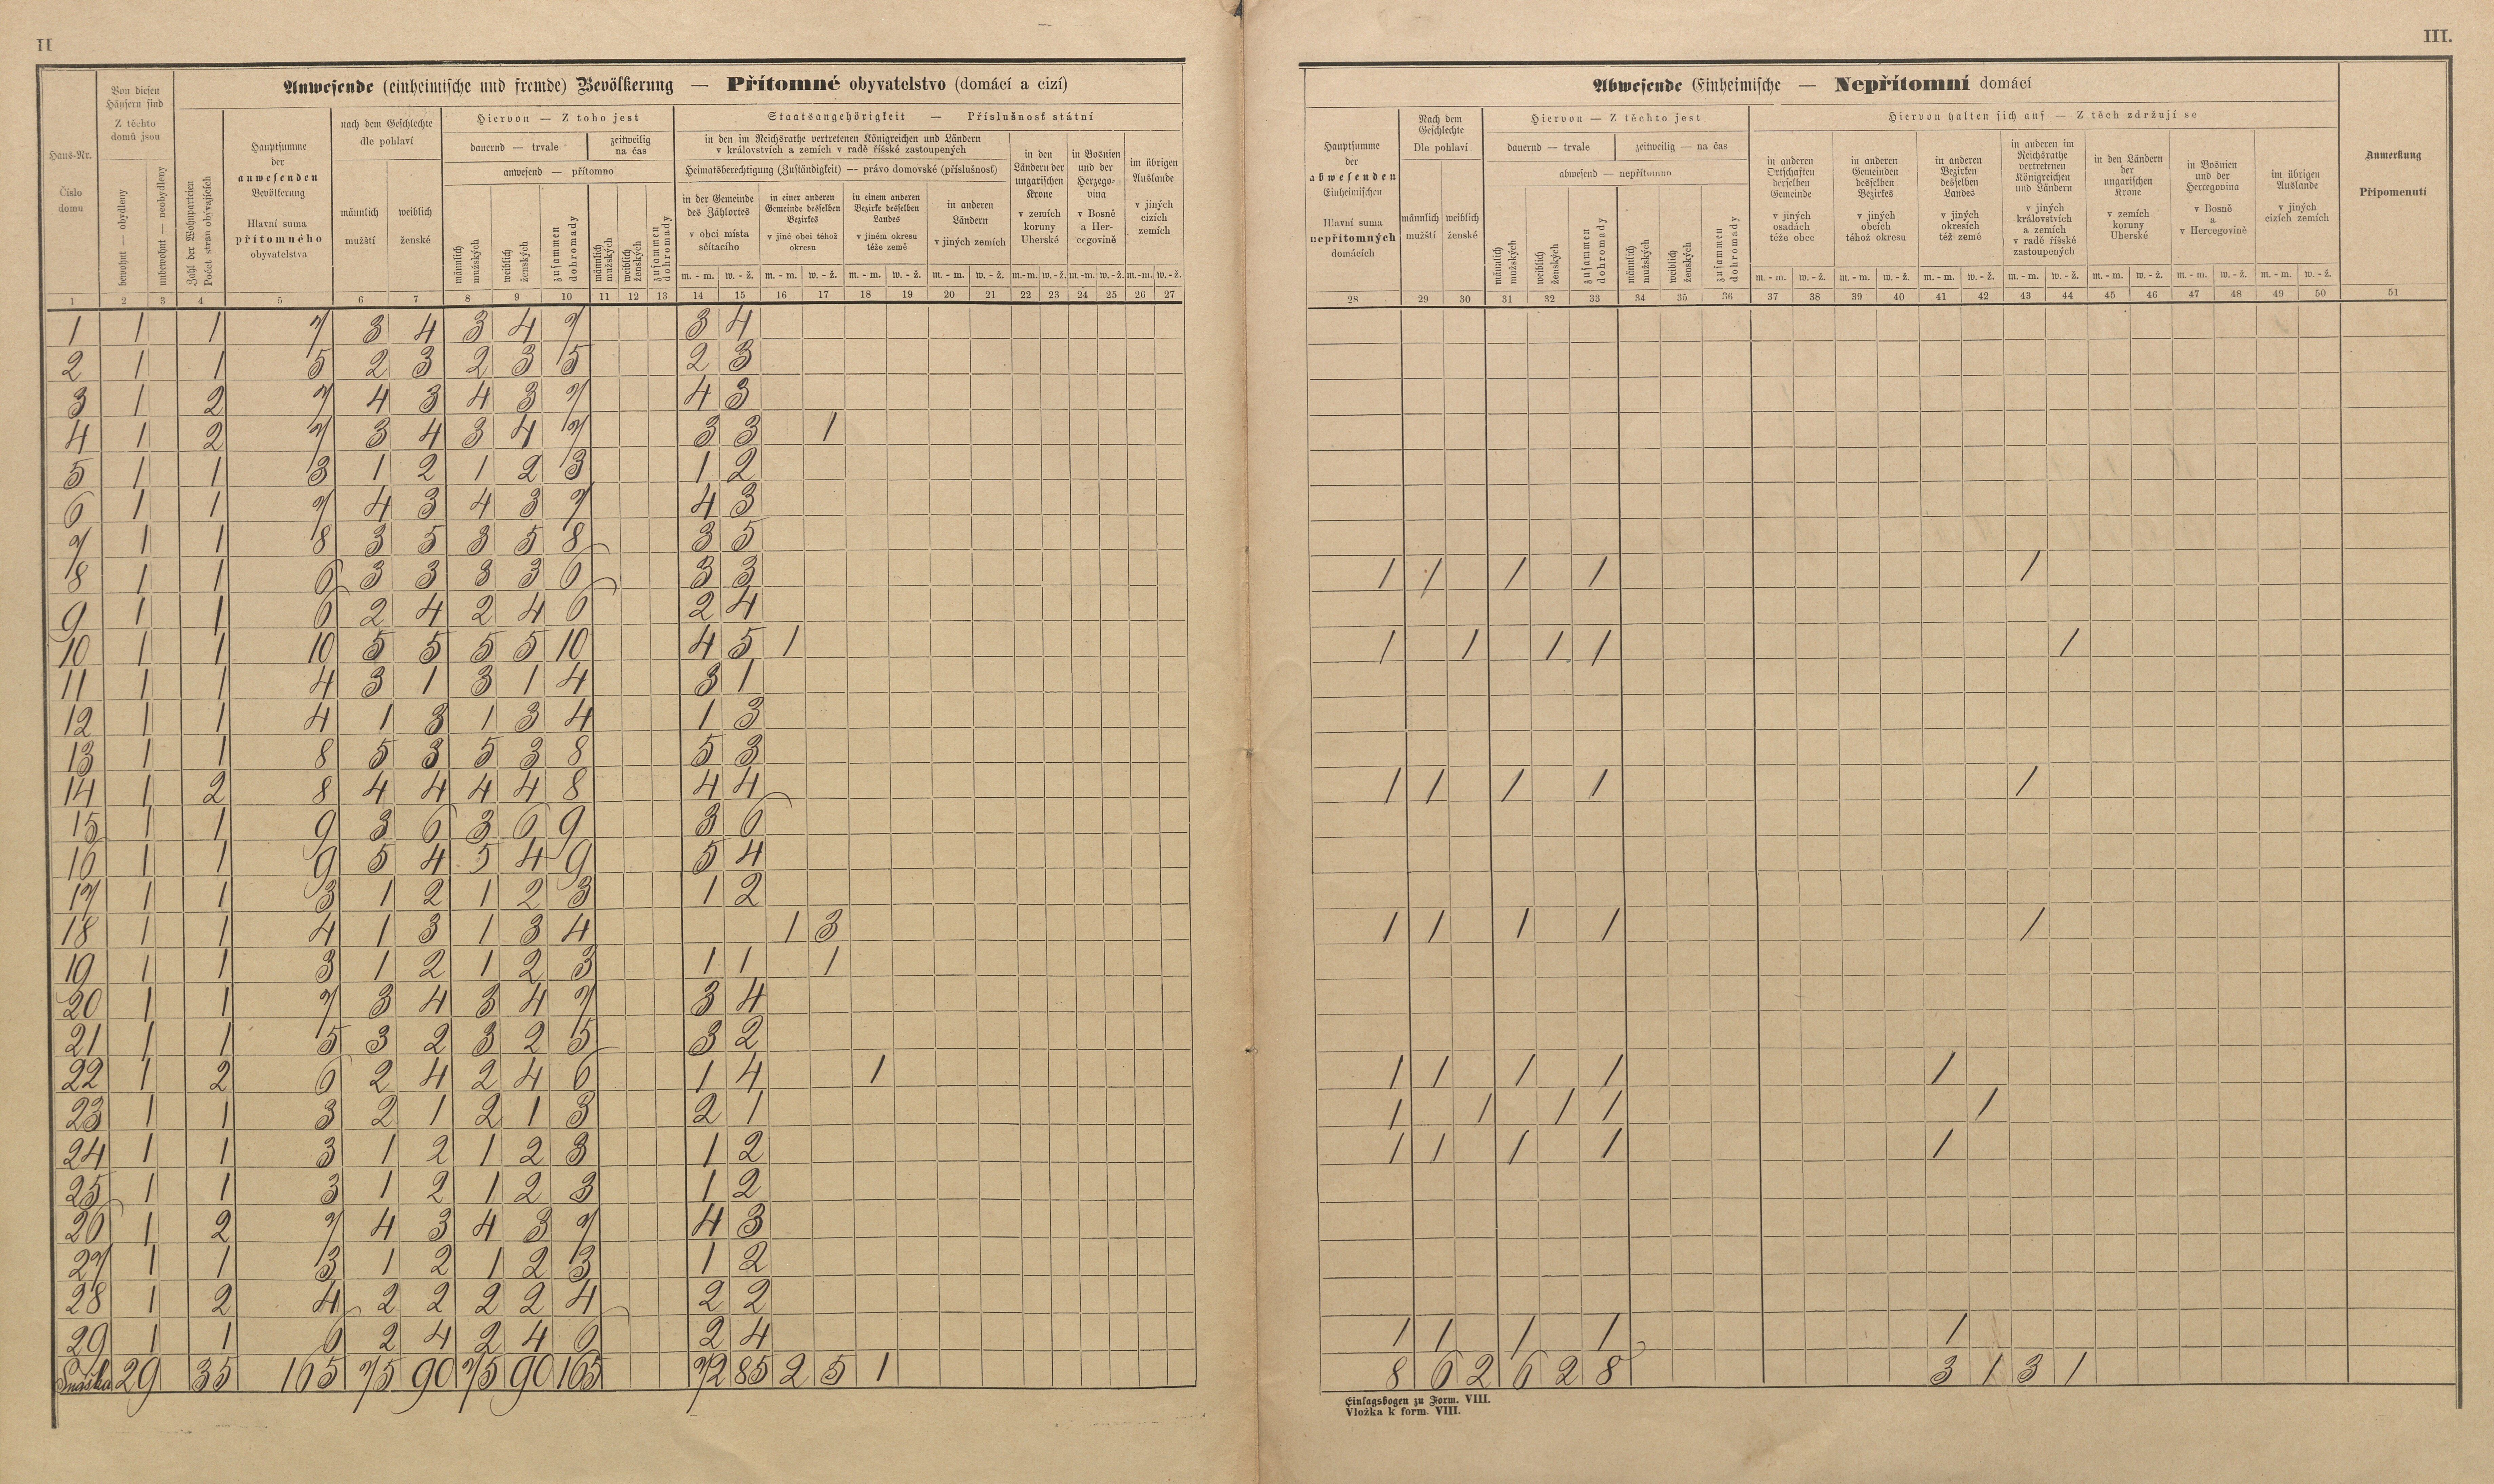 II
Anwesende (einheimische und fremde) Bevölkerung — Přítomné obyvatelstvo (domácí a cizí)
Haus-Nr.
Číslo domu
Von diesen Häusern sind
Z těchto domů jsou
bewohnt — obydleny
unbewohnt — neobydleny
Zahl der Wohnparteien
Počet stran obývajících
Hauptsumme der anwesenden Bevölkerung
Hlavní suma přítomného obyvatelstva
nach dem Geschlechte
dle pohlaví
männlich mužští
weiblich ženské
Hiervon — Z toho jest
dauernd — trvale
zeitweilig na čas
anwesend — přítomno
männlich mužských
weiblich ženských
zusammen dohromady
männlich mužských
weiblich ženských
zusammen dohromady
Staatsangehörigkeit — Příslušnost státní
in den im Reichsrathe vertretenen Königreichen und Ländern
v královstvích a zemích v radě říšské zastoupených
Heimatsberechtigung (Zuständigkeit) — právo domovské (příslušnost)
in der Gemeinde des Zählortes
v obci místa sčítacího
in einer anderen Gemeinde desselben Bezirkes
v jiné obci téhož okresu
in einem anderen Bezirke desselben Landes
v jiném okresu téže země
in anderen Ländern
v jiných zemích
in den Ländern der ungarischen Krone
v zemích koruny Uherské
in Bosnien und der Herzegovina
v Bosně a Hercegovině
im übrigen Auslande
v jiných cizích zemích
m. - m. w. - ž. m. - m. w. - ž. m. - m. w. - ž. m. - m. w. - ž. m.-m. w.-ž. m.-m. w.-ž. m.-m. w.-ž.
1 2 3 4 5 6 7 8 9 10 11 12 13 14 15 16 17 18 19 20 21 22 23 24 25 26 27
1 1 1 7 3 4 3 4 7 3 4
2 1 1 5 2 3 2 3 5 2 3
3 1 2 7 4 3 4 3 7 4 3
4 1 2 7 3 4 3 4 7 3 3 1
5 1 1 3 1 2 1 2 3 1 2
6 1 1 7 4 3 4 3 7 4 3
7 1 1 8 3 5 3 5 8 3 5
8 1 1 6 3 3 3 3 6 3 3
9 1 1 6 2 4 2 4 6 2 4
10 1 1 10 5 5 5 5 10 4 5 1
11 1 1 4 3 1 3 1 4 3 1
12 1 1 4 1 3 1 3 4 1 3
13 1 1 8 5 3 5 3 8 5 3
14 1 2 8 4 4 4 4 8 4 4
15 1 1 9 3 6 3 6 9 3 6
16 1 1 9 5 4 5 4 9 5 4
17 1 1 3 1 2 1 2 3 1 2
18 1 1 4 1 3 1 3 4 1 3
19 1 1 3 1 2 1 2 3 1 1 1
20 1 1 7 3 4 3 4 7 3 4
21 1 1 5 3 2 3 2 5 3 2
22 1 2 6 2 4 2 4 6 1 4 1
23 1 1 3 2 1 2 1 3 2 1
24 1 1 3 1 2 1 2 3 1 2
25 1 1 3 1 2 1 2 3 1 2
26 1 2 7 4 3 4 3 7 4 3
27 1 1 3 1 2 1 2 3 1 2
28 1 2 4 2 2 2 2 4 2 2
29 1 1 6 2 4 2 4 6 2 4
Snáška 29 35 165 75 90 75 90 165 72 85 2 5 1
III.
Abwesende Einheimische — Nepřítomní domácí
Hauptsumme der abwesenden Einheimischen
Hlavní suma nepřítomných domácích
Nach dem Geschlechte
Dle pohlaví
männlich mužští
weiblich ženské
Hiervon — Z těchto jest
dauernd — trvale
zeitweilig — na čas
abwesend — nepřítomno
männlich mužských
weiblich ženských
zusammen dohromady
männlich mužských
weiblich ženských
zusammen dohromady
Hiervon halten sich auf — Z těch zdržují se
in anderen Ortschaften derselben Gemeinde
v jiných osadách téže obce
in anderen Gemeinden desselben Bezirkes
v jiných obcích téhož okresu
in anderen Bezirken desselben Landes
v jiných okresích též země
in anderen im Reichsrathe vertretenen Königreichen und Ländern
v jiných královstvích a zemích v radě říšské zastoupených
in den Ländern der ungarischen Krone
v zemích koruny Uherské
in Bosnien und der Hercegovina
v Bosně a v Hercegovině
im übrigen Auslande
v jiných cizích zemích
Anmerkung
Připomenutí
m. - m. w. - ž. m. - m. w. - ž. m. - m. w. - ž. m. - m. w. - ž. m. - m. w. - ž. m. - m. w. - ž. m. - m. w. - ž.
28 29 30 31 32 33 34 35 36 37 38 39 40 41 42 43 44 45 46 47 48 49 50 51
1 1 1 1 1
1 1 1 1 1
1 1 1 1 1
1 1 1 1 1
1 1 1 1 1
1 1 1 1 1
1 1 1 1 1
1 1 1 1 1
8 6 2 6 2 8 3 1 3 1
Einlagsbogen zu Form. VIII.
Vložka k form. VIII.